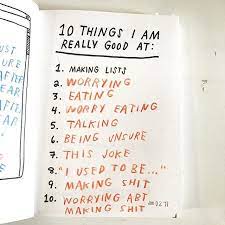 10 THINGS I AM
REALLY GOOD AT:
1. MAKING LISTS
2. WORRYING
3. EATING
4. WORRY EATING
5. TALKING
6. BEING UNSURE
7. THIS JOKE
8. "I USED TO BE..."
9. MAKING SHIT
10. WORRYING ABT
MAKING SHIT